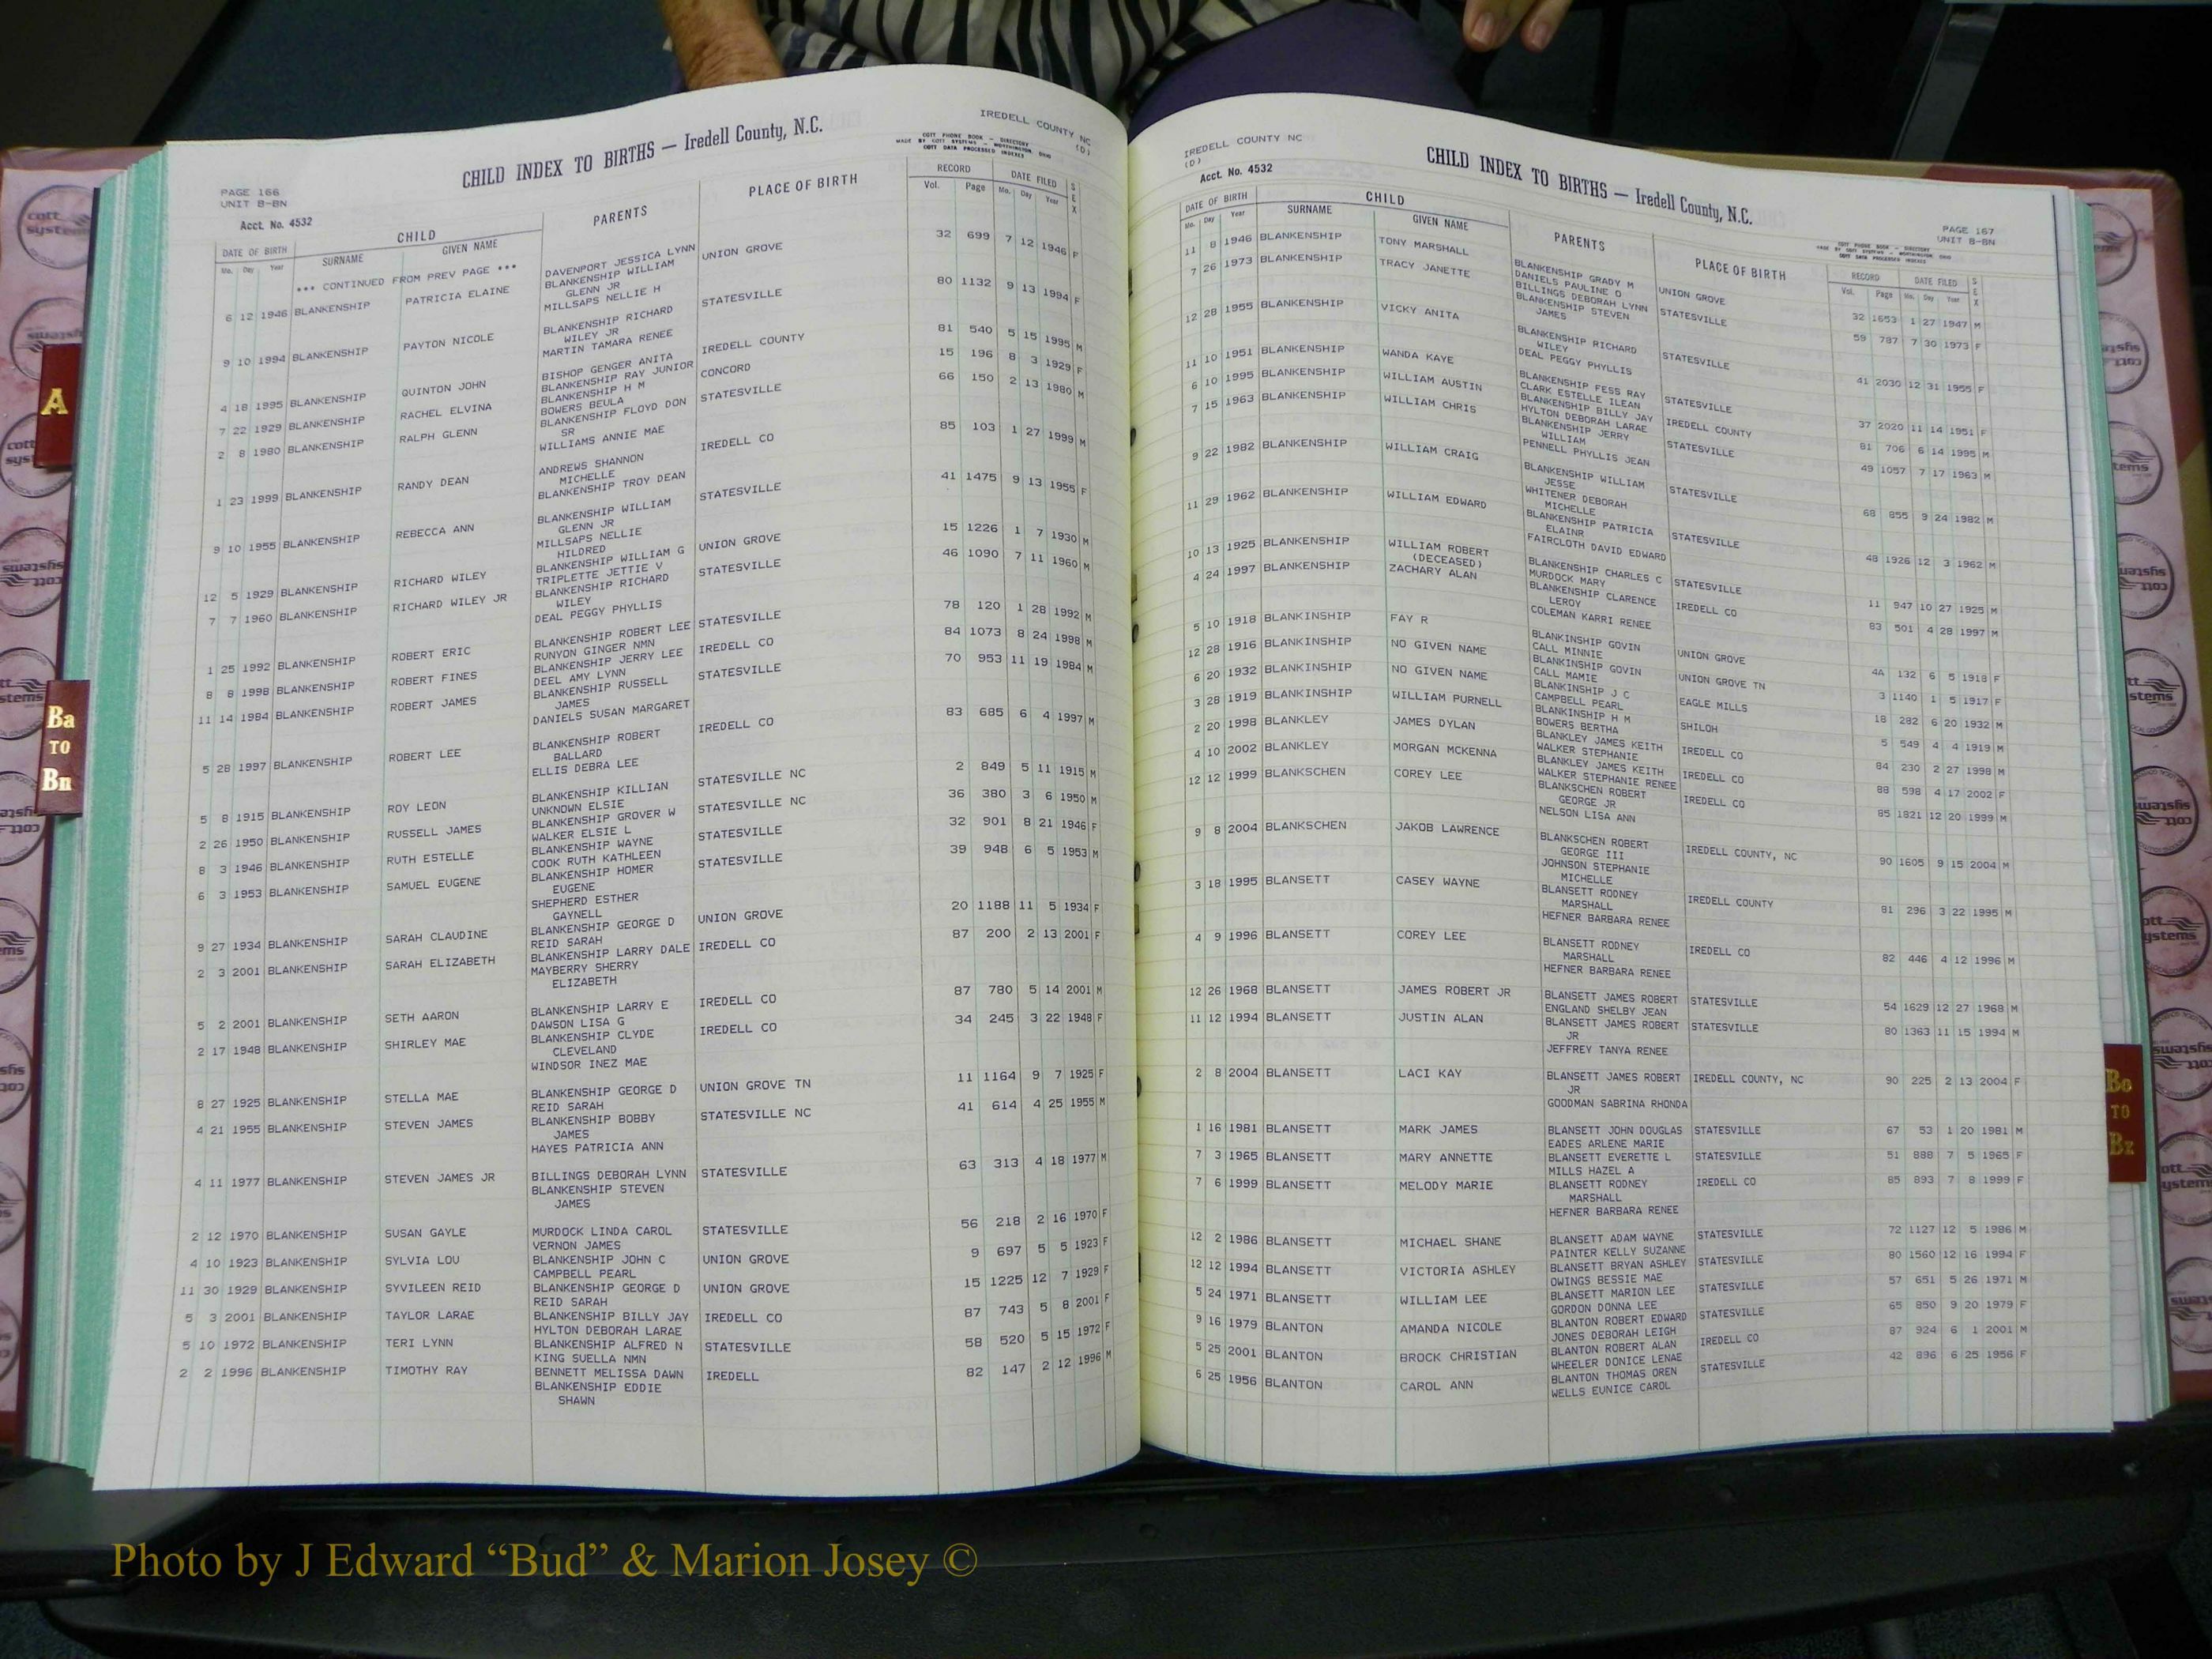 IREDELL COUNTY NC
(D)
CHILD INDEX TO BIRTHS — Iredell County, N.C.
COTT PHONE BOOK - DIRECTORY
MADE BY COTT SYSTEMS - WORTHINGTON, OHIO
COTT DATA PROCESSED INDEXES
PAGE 166
UNIT B-BN
Acct. No. 4532
DATE OF BIRTH CHILD PARENTS PLACE OF BIRTH RECORD DATE FILED SEX
Mo. Day Year SURNAME GIVEN NAME Vol. Page Mo. Day Year
*** CONTINUED FROM PREV PAGE ***
DAVENPORT JESSICA LYNN
6 12 1946 BLANKENSHIP PATRICIA ELAINE BLANKENSHIP WILLIAM UNION GROVE 32 699 7 12 1946 F
GLENN JR
MILLSAPS NELLIE H
9 10 1994 BLANKENSHIP PAYTON NICOLE BLANKENSHIP RICHARD STATESVILLE 80 1132 9 13 1994 F
WILEY JR
MARTIN TAMARA RENEE
4 18 1995 BLANKENSHIP QUINTON JOHN BISHOP GENGER ANITA IREDELL COUNTY 81 540 5 15 1995 M
BLANKENSHIP RAY JUNIOR
7 22 1929 BLANKENSHIP RACHEL ELVINA BLANKENSHIP H M CONCORD 15 196 8 3 1929 F
BOWERS BEULA
2 8 1980 BLANKENSHIP RALPH GLENN BLANKENSHIP FLOYD DON STATESVILLE 66 150 2 13 1980 M
SR
WILLIAMS ANNIE MAE
1 23 1999 BLANKENSHIP RANDY DEAN ANDREWS SHANNON IREDELL CO 85 103 1 27 1999 M
MICHELLE
BLANKENSHIP TROY DEAN
9 10 1955 BLANKENSHIP REBECCA ANN BLANKENSHIP WILLIAM STATESVILLE 41 1475 9 13 1955 F
GLENN JR
MILLSAPS NELLIE
HILDRED
12 5 1929 BLANKENSHIP RICHARD WILEY BLANKENSHIP WILLIAM G UNION GROVE 15 1226 1 7 1930 M
TRIPLETTE JETTIE V
7 7 1960 BLANKENSHIP RICHARD WILEY JR BLANKENSHIP RICHARD STATESVILLE 46 1090 7 11 1960 M
WILEY
DEAL PEGGY PHYLLIS
1 25 1992 BLANKENSHIP ROBERT ERIC BLANKENSHIP ROBERT LEE STATESVILLE 78 120 1 28 1992 M
RUNYON GINGER NMN
8 8 1998 BLANKENSHIP ROBERT FINES BLANKENSHIP JERRY LEE IREDELL CO 84 1073 8 24 1998 M
DEEL AMY LYNN
11 14 1984 BLANKENSHIP ROBERT JAMES BLANKENSHIP RUSSELL STATESVILLE 70 953 11 19 1984 M
JAMES
DANIELS SUSAN MARGARET
5 28 1997 BLANKENSHIP ROBERT LEE BLANKENSHIP ROBERT IREDELL CO 83 685 6 4 1997 M
BALLARD
ELLIS DEBRA LEE
5 8 1915 BLANKENSHIP ROY LEON BLANKENSHIP KILLIAN STATESVILLE NC 2 849 5 11 1915 M
UNKNOWN ELSIE
2 26 1950 BLANKENSHIP RUSSELL JAMES BLANKENSHIP GROVER W STATESVILLE NC 36 380 3 6 1950 M
WALKER ELSIE L
8 3 1946 BLANKENSHIP RUTH ESTELLE BLANKENSHIP WAYNE STATESVILLE 32 901 8 21 1946 F
COOK RUTH KATHLEEN
6 3 1953 BLANKENSHIP SAMUEL EUGENE BLANKENSHIP HOMER STATESVILLE 39 948 6 5 1953 M
EUGENE
SHEPHERD ESTHER
GAYNELL
9 27 1934 BLANKENSHIP SARAH CLAUDINE BLANKENSHIP GEORGE D UNION GROVE 20 1188 11 5 1934 F
REID SARAH
2 3 2001 BLANKENSHIP SARAH ELIZABETH BLANKENSHIP LARRY DALE IREDELL CO 87 200 2 13 2001 F
MAYBERRY SHERRY
ELIZABETH
5 2 2001 BLANKENSHIP SETH AARON BLANKENSHIP LARRY E IREDELL CO 87 780 5 14 2001 M
DAWSON LISA G
2 17 1948 BLANKENSHIP SHIRLEY MAE BLANKENSHIP CLYDE IREDELL CO 34 245 3 22 1948 F
CLEVELAND
WINDSOR INEZ MAE
8 27 1925 BLANKENSHIP STELLA MAE BLANKENSHIP GEORGE D UNION GROVE TN 11 1164 9 7 1925 F
REID SARAH
4 21 1955 BLANKENSHIP STEVEN JAMES BLANKENSHIP BOBBY STATESVILLE NC 41 614 4 25 1955 M
JAMES
HAYES PATRICIA ANN
4 11 1977 BLANKENSHIP STEVEN JAMES JR BILLINGS DEBORAH LYNN STATESVILLE 63 313 4 18 1977 M
BLANKENSHIP STEVEN
JAMES
2 12 1970 BLANKENSHIP SUSAN GAYLE MURDOCK LINDA CAROL STATESVILLE 56 218 2 16 1970 F
VERNON JAMES
4 10 1923 BLANKENSHIP SYLVIA LOU BLANKENSHIP JOHN C UNION GROVE 9 697 5 5 1923 F
CAMPBELL PEARL
11 30 1929 BLANKENSHIP SYVILEEN REID BLANKENSHIP GEORGE D UNION GROVE 15 1225 12 7 1929 F
REID SARAH
5 3 2001 BLANKENSHIP TAYLOR LARAE BLANKENSHIP BILLY JAY IREDELL CO 87 743 5 8 2001 F
HYLTON DEBORAH LARAE
5 10 1972 BLANKENSHIP TERI LYNN BLANKENSHIP ALFRED N STATESVILLE 58 520 5 15 1972 F
KING SUELLA NMN
2 2 1996 BLANKENSHIP TIMOTHY RAY BENNETT MELISSA DAWN IREDELL 82 147 2 12 1996 M
BLANKENSHIP EDDIE
SHAWN
IREDELL COUNTY NC
(D)
Acct. No. 4532
CHILD INDEX TO BIRTHS — Iredell County, N.C.
COTT PHONE BOOK - DIRECTORY
MADE BY COTT SYSTEMS - WORTHINGTON, OHIO
COTT DATA PROCESSED INDEXES
PAGE 167
UNIT B-BN
DATE OF BIRTH CHILD PARENTS PLACE OF BIRTH RECORD DATE FILED SEX
Mo. Day Year SURNAME GIVEN NAME Vol. Page Mo. Day Year
11 8 1946 BLANKENSHIP TONY MARSHALL BLANKENSHIP GRADY M UNION GROVE 32 1653 1 27 1947 M
DANIELS PAULINE O
7 26 1973 BLANKENSHIP TRACY JANETTE BILLINGS DEBORAH LYNN STATESVILLE 59 787 7 30 1973 F
BLANKENSHIP STEVEN
JAMES
12 28 1955 BLANKENSHIP VICKY ANITA BLANKENSHIP RICHARD STATESVILLE 41 2030 12 31 1955 F
WILEY
DEAL PEGGY PHYLLIS
11 10 1951 BLANKENSHIP WANDA KAYE BLANKENSHIP FESS RAY STATESVILLE 37 2020 11 14 1951 F
CLARK ESTELLE ILEAN
6 10 1995 BLANKENSHIP WILLIAM AUSTIN BLANKENSHIP BILLY JAY IREDELL COUNTY 81 706 6 14 1995 M
HYLTON DEBORAH LARAE
7 15 1963 BLANKENSHIP WILLIAM CHRIS BLANKENSHIP JERRY STATESVILLE 49 1057 7 17 1963 M
WILLIAM
PENNELL PHYLLIS JEAN
9 22 1982 BLANKENSHIP WILLIAM CRAIG BLANKENSHIP WILLIAM STATESVILLE 68 855 9 24 1982 M
JESSE
WHITENER DEBORAH
MICHELLE
11 29 1962 BLANKENSHIP WILLIAM EDWARD BLANKENSHIP PATRICIA STATESVILLE 48 1926 12 3 1962 M
ELAINR
FAIRCLOTH DAVID EDWARD
10 13 1925 BLANKENSHIP WILLIAM ROBERT BLANKENSHIP CHARLES C STATESVILLE 11 947 10 27 1925 M
(DECEASED) MURDOCK MARY
4 24 1997 BLANKENSHIP ZACHARY ALAN BLANKENSHIP CLARENCE IREDELL CO 83 501 4 28 1997 M
LEROY
COLEMAN KARRI RENEE
5 10 1918 BLANKINSHIP FAY R BLANKINSHIP GOVIN UNION GROVE 4A 132 6 5 1918 F
CALL MINNIE
12 28 1916 BLANKINSHIP NO GIVEN NAME BLANKINSHIP GOVIN UNION GROVE TN 3 1140 1 5 1917 F
CALL MAMIE
6 20 1932 BLANKINSHIP NO GIVEN NAME BLANKINSHIP J C EAGLE MILLS 18 282 6 20 1932 M
CAMPBELL PEARL
3 28 1919 BLANKINSHIP WILLIAM PURNELL BLANKINSHIP H M SHILOH 5 549 4 4 1919 M
BOWERS BERTHA
2 20 1998 BLANKLEY JAMES DYLAN BLANKLEY JAMES KEITH IREDELL CO 84 230 2 27 1998 M
WALKER STEPHANIE
4 10 2002 BLANKLEY MORGAN MCKENNA BLANKLEY JAMES KEITH IREDELL CO 88 598 4 17 2002 F
WALKER STEPHANIE RENEE
12 12 1999 BLANKSCHEN COREY LEE BLANKSCHEN ROBERT IREDELL CO 85 1821 12 20 1999 M
GEORGE JR
NELSON LISA ANN
9 8 2004 BLANKSCHEN JAKOB LAWRENCE BLANKSCHEN ROBERT IREDELL COUNTY, NC 90 1605 9 15 2004 M
GEORGE III
JOHNSON STEPHANIE
MICHELLE
3 18 1995 BLANSETT CASEY WAYNE BLANSETT RODNEY IREDELL COUNTY 81 296 3 22 1995 M
MARSHALL
HEFNER BARBARA RENEE
4 9 1996 BLANSETT COREY LEE BLANSETT RODNEY IREDELL CO 82 446 4 12 1996 M
MARSHALL
HEFNER BARBARA RENEE
12 26 1968 BLANSETT JAMES ROBERT JR BLANSETT JAMES ROBERT STATESVILLE 54 1629 12 27 1968 M
ENGLAND SHELBY JEAN
11 12 1994 BLANSETT JUSTIN ALAN BLANSETT JAMES ROBERT STATESVILLE 80 1363 11 15 1994 M
JR
JEFFREY TANYA RENEE
2 8 2004 BLANSETT LACI KAY BLANSETT JAMES ROBERT IREDELL COUNTY, NC 90 225 2 13 2004 F
JR
GOODMAN SABRINA RHONDA
1 16 1981 BLANSETT MARK JAMES BLANSETT JOHN DOUGLAS STATESVILLE 67 53 1 20 1981 M
EADES ARLENE MARIE
7 3 1965 BLANSETT MARY ANNETTE BLANSETT EVERETTE L STATESVILLE 51 888 7 5 1965 F
MILLS HAZEL A
7 6 1999 BLANSETT MELODY MARIE BLANSETT RODNEY IREDELL CO 85 893 7 8 1999 F
MARSHALL
HEFNER BARBARA RENEE
12 2 1986 BLANSETT MICHAEL SHANE BLANSETT ADAM WAYNE STATESVILLE 72 1127 12 5 1986 M
PAINTER KELLY SUZANNE
12 12 1994 BLANSETT VICTORIA ASHLEY BLANSETT BRYAN ASHLEY STATESVILLE 80 1560 12 16 1994 F
OWINGS BESSIE MAE
5 24 1971 BLANSETT WILLIAM LEE BLANSETT MARION LEE STATESVILLE 57 651 5 26 1971 M
GORDON DONNA LEE
9 16 1979 BLANTON AMANDA NICOLE BLANTON ROBERT EDWARD STATESVILLE 65 850 9 20 1979 F
JONES DEBORAH LEIGH
5 25 2001 BLANTON BROCK CHRISTIAN BLANTON ROBERT ALAN IREDELL CO 87 924 6 1 2001 M
WHEELER DONICE LENAE
6 25 1956 BLANTON CAROL ANN BLANTON THOMAS OREN STATESVILLE 42 896 6 25 1956 F
WELLS EUNICE CAROL
A
Ba
TO
Bn
Bo
TO
Bz
cott
systems
Photo by J Edward “Bud” & Marion Josey ©